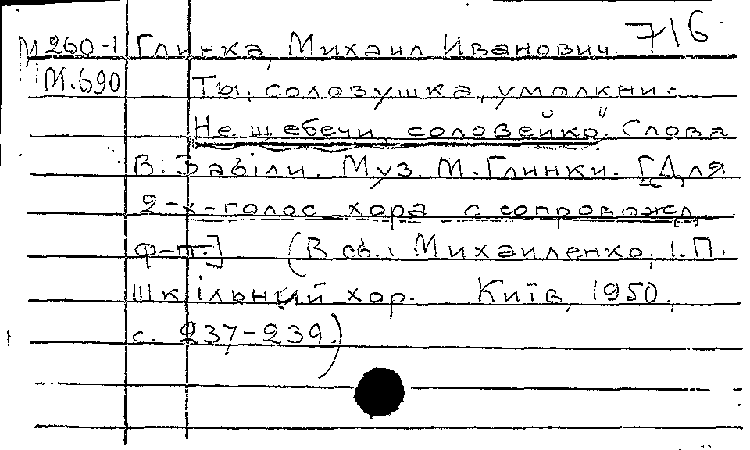 716
М260-1 Глинка, Михаил Иванович
М.690 Ты, соловушка, умолкни.
"Не щебечи, соловейко". Слова
В. Забіли. Муз. М. Глинки. [Для
2-х-голос. хора с сопровожд.
ф-п.] (В сб.: Михаиленко, І.П.
Шкільний хор. Київ, 1950,
с. 237-239.)